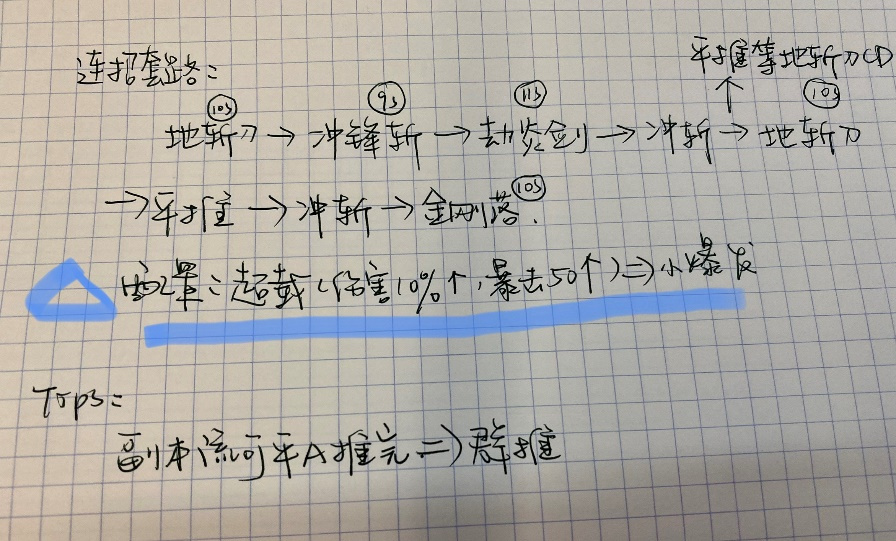 连招套路:
平推等地斩刀CD
10s 9s 11s 10s
地斩刀→冲锋斩→劫炎剑→冲斩→地斩刀
10s
→平推→冲斩→金刚落.
罩:超载(伤害10%↑,暴击50↑)⇒小爆发
Tops:
副本流可平A推完⇒群推